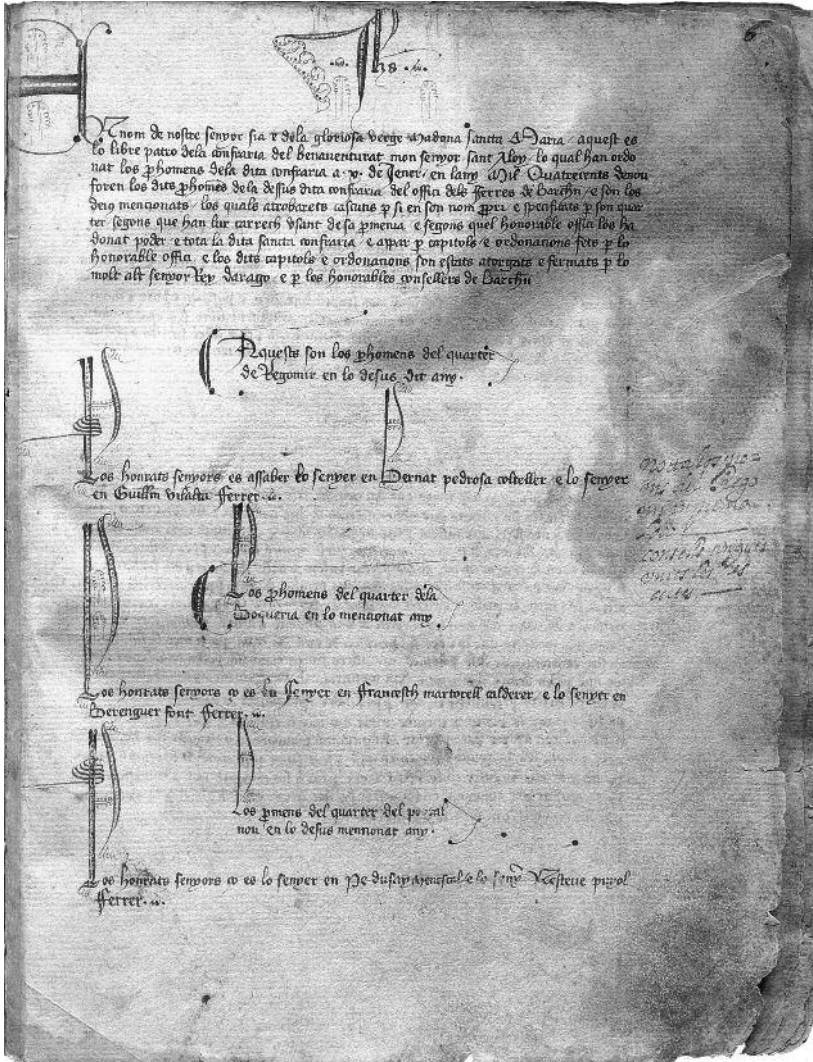 .xp. Ihs .xp.
En nom de nostre senyor sia e dela gloriosa verge Madona sancta Maria aquest es
lo libre patro dela confraria del benaventurat mon senyor sant Aloy lo qual han ordo
nat los phomens dela dita confraria a .v. de Jener. en lany Mil Quatrecents denou
foren los dits phomens dela desus dita confraria del offici dels fferres de Barchn e son los
deio mencionats los quals atrobarets cascuns p si en son nom ppri e specificats p son quar
ter segons que han lur carrech usant desa pmenia e segons quel honorable offici los ha
donat poder e tota la dita sancta confraria e appar p capitols e ordonacions fets p lo
honorable offici e los dits capitols e ordonacions son estats atorgats e fermats p lo
molt alt senyor Rey darago e p los honorables consellers de Barchn
Aquests son los phomens del quarter
de Regomir en lo desus dit any.
Los honrats senyors es assaber lo senyer en Bernat pedrosa colteller e lo senyer
en Guillm vilalta fferrer
Los phomens del quarter dela
Boqueria en lo mencionat any
Los honrats senyors co es lo senyer en ffrancesch martorell calderer e lo senyer en
Berenguer font fferrer
Los pmens del quarter del portal
nou en lo desus mencionat any.
Los honrats senyors co es lo senyer en Pe dusay menescal e lo seny Nesteve pinyol
fferrer